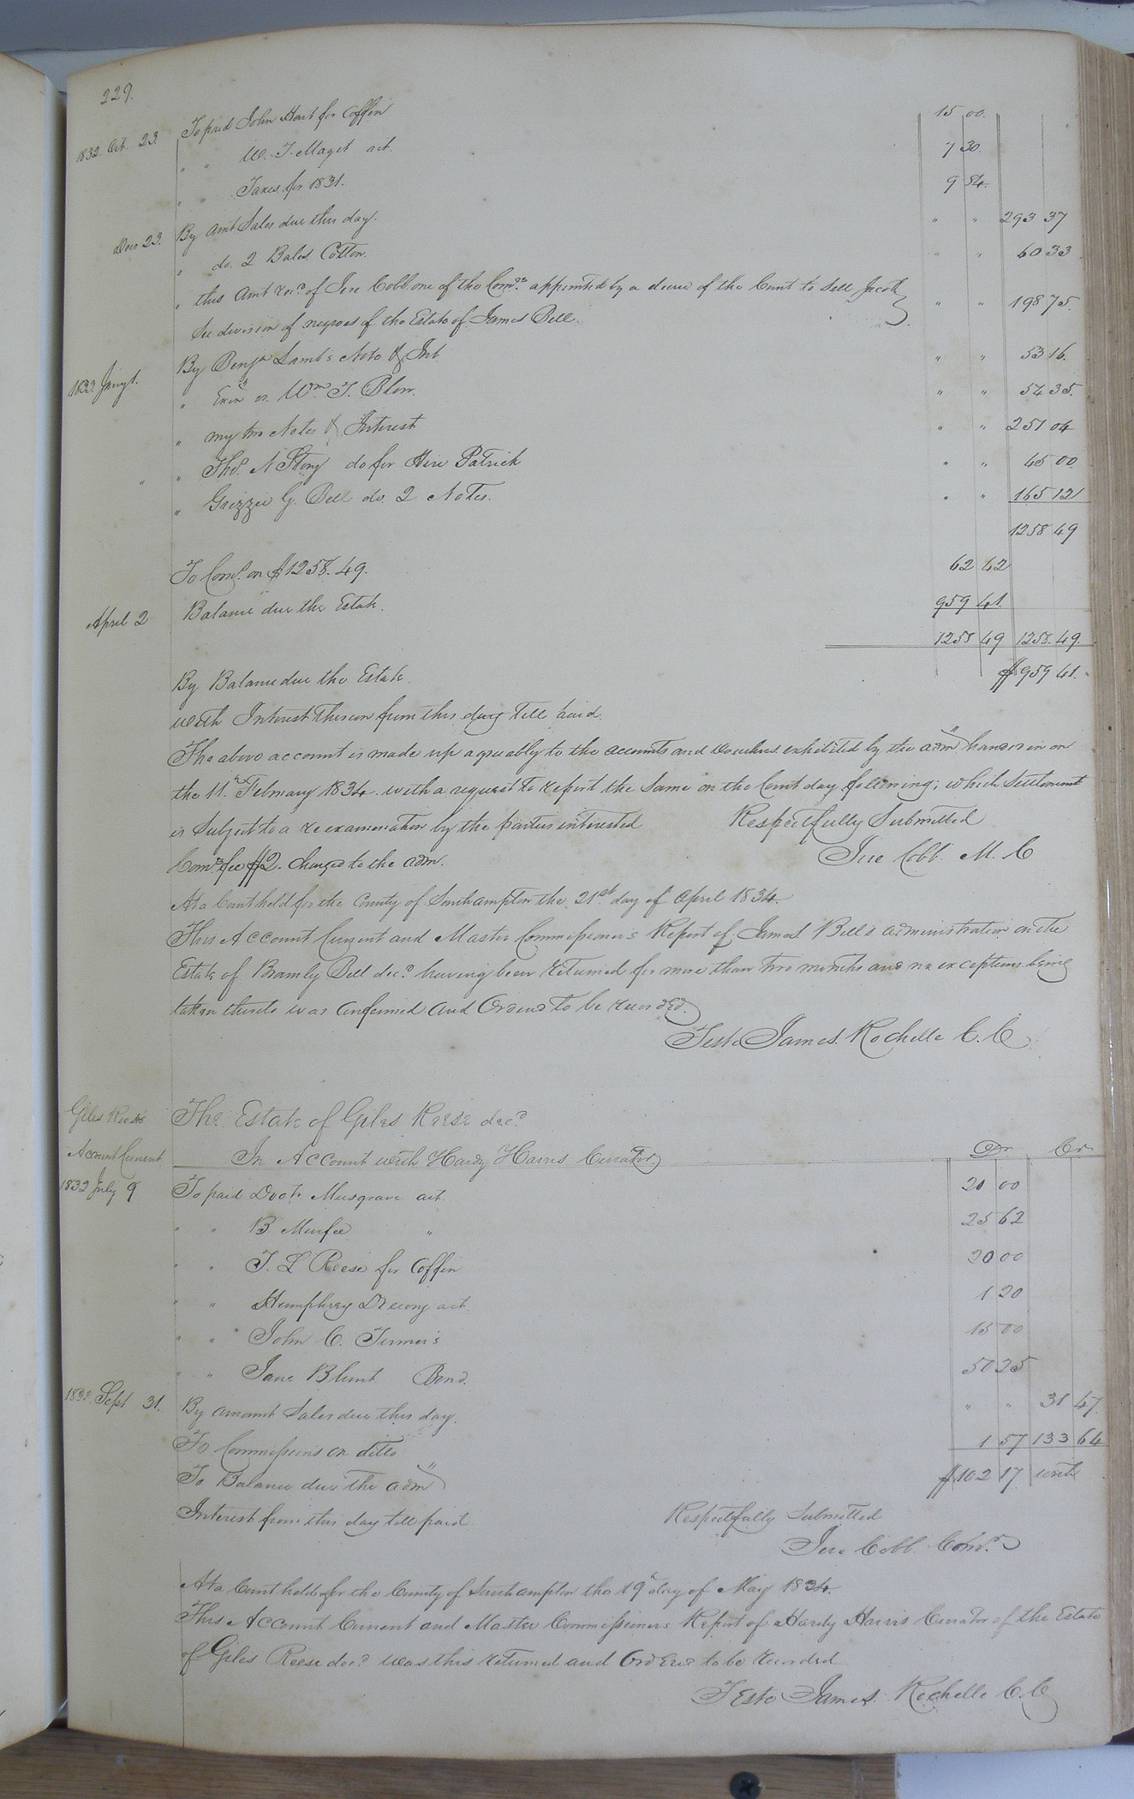 229.
1832 Oct. 23 To paid John Hart for Coffin 15 00
" " W. T. Maget act. 7 30
" " Taxes for 1831. 9 84
Decr 23. By amt Sales due this day. " " 293 37
" do. 2 Bales Cotton. " " 60 33
" this Amt recd of Jere Cobb one of the Comrs appointed by a decree of the Court to Sell Jacob
See division of negroes of the Estate of James Bell. " " 198 75.
1833 Jany 1. By Benja Lamb's Note & Int " " 53 16.
" Exon vs. Wm T. Blow. " " 54 35.
" my two Notes & Interest " " 251 04
" " Thos. N do for Hire Patrick " " 45 00
" Grizzie G. Bell do. 2 Notes. " " 165 121
1258 49
To Coms. on $1258.49. 62 42
April 2 Balance due the Estate. 959 41
1258 49 1258.49.
By Balance due the Estate $959 41.
with Interest thereon from this day till paid.
The above account is made up agreeably to the accounts and vouchers exhibited by the admr handed in on
the 11th February 1834 with a request to report the same on the Court day following; which Settlement
is Subject to a reexamination by the parties interested Respectfully Submitted
Comrs fee $2. charged to the adm. Jere Cobb. M. C
At a Court held for the County of Southampton the 21st day of April 1834.
This Account Current and Master Commissioner's Report of James Bell's administration on the
Estate of Bramly Bell decd. having been returned for more than two months and no exceptions being
taken thereto was Confirmed and Ordered to be recorded.
Teste James Rochelle C. C
Giles Reese The Estate of Giles Reese decd
Account Current In Account with Hardy Harris Curator Dr Cr
1832 July 9 To paid Doct. Musgrave act. 20 00
" " B Murfee " 25 62
" " T. L Reese for Coffin 20 00
" " Humphrey Drewry act. 1 20
" " John C. Turner's 15 00
" " Jane Blunt Bond. 50 25
1832 Sept 31. By amount Sales due this day. " " 31 47
To Commissions on ditto 1 57 133 64
To Balance due the admr $102 17 with
Interest from this day till paid Respectfully Submitted
Jere Cobb Comr.
At a Court held for the County of Southampton the 19th day of May 1834.
This Account Current and Master Commissioners Report of Hardy Harris Curator of the Estate
of Giles Reese decd was this returned and Ordered to be recorded
Teste James Rochelle C. C